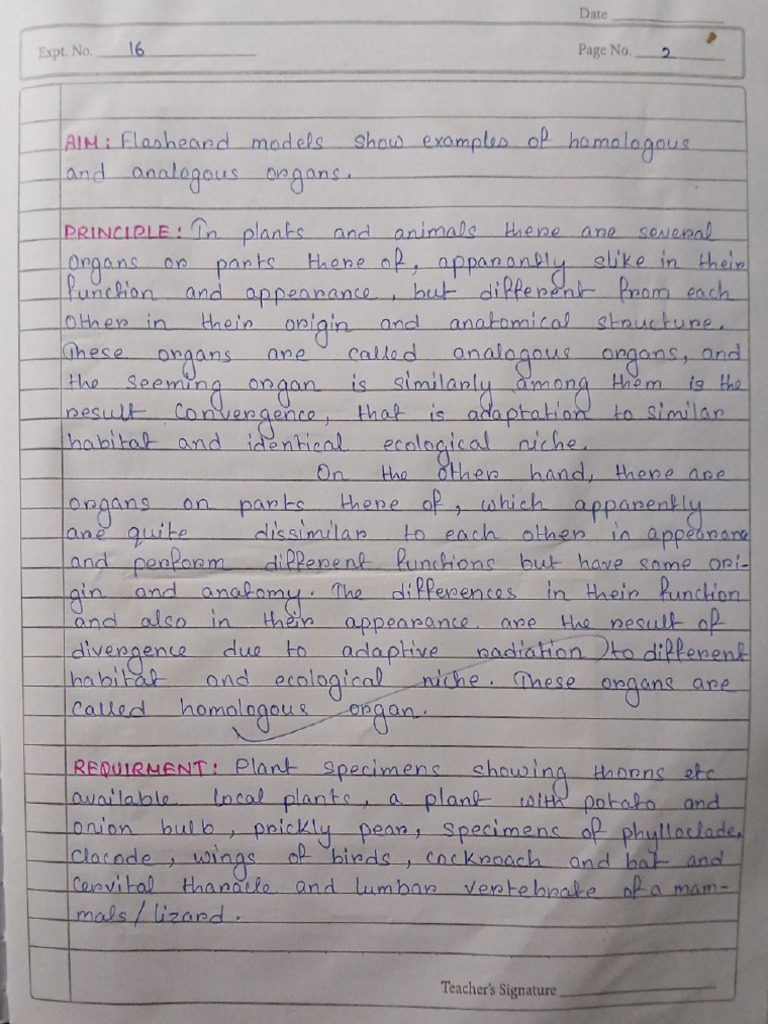 Date
Expt. No. 16
Page No. 2
AIM: Flashcard models show examples of homologous
and analogous organs.
PRINCIPLE: In plants and animals there are several
organs or parts there of, apparantly slike in their
function and appearance, but different from each
other in their origin and anatomical structure.
These organs are called analogous organs, and
the seeming organ is similarly among them is the
result convergence, that is adaptation to similar
habitat and identical ecological niche.
On the other hand, there are
organs or parts there of, which apparently
are quite dissimilar to each other in appearance
and perform different functions but have some ori-
gin and anatomy. The differences in their function
and also in their appearance are the result of
divergence due to adaptive radiation to different
habitat and ecological niche. These organs are
called homologous organ.
REQUIRMENT: Plant specimens showing thorns etc
available local plants, a plant with potato and
onion bulb, prickly pear, specimens of phylloclade,
clacode, wings of birds, cockroach and bat and
cervital tharacle and lumbar vertebrate of a mam-
mals/lizard.
Teacher's Signature